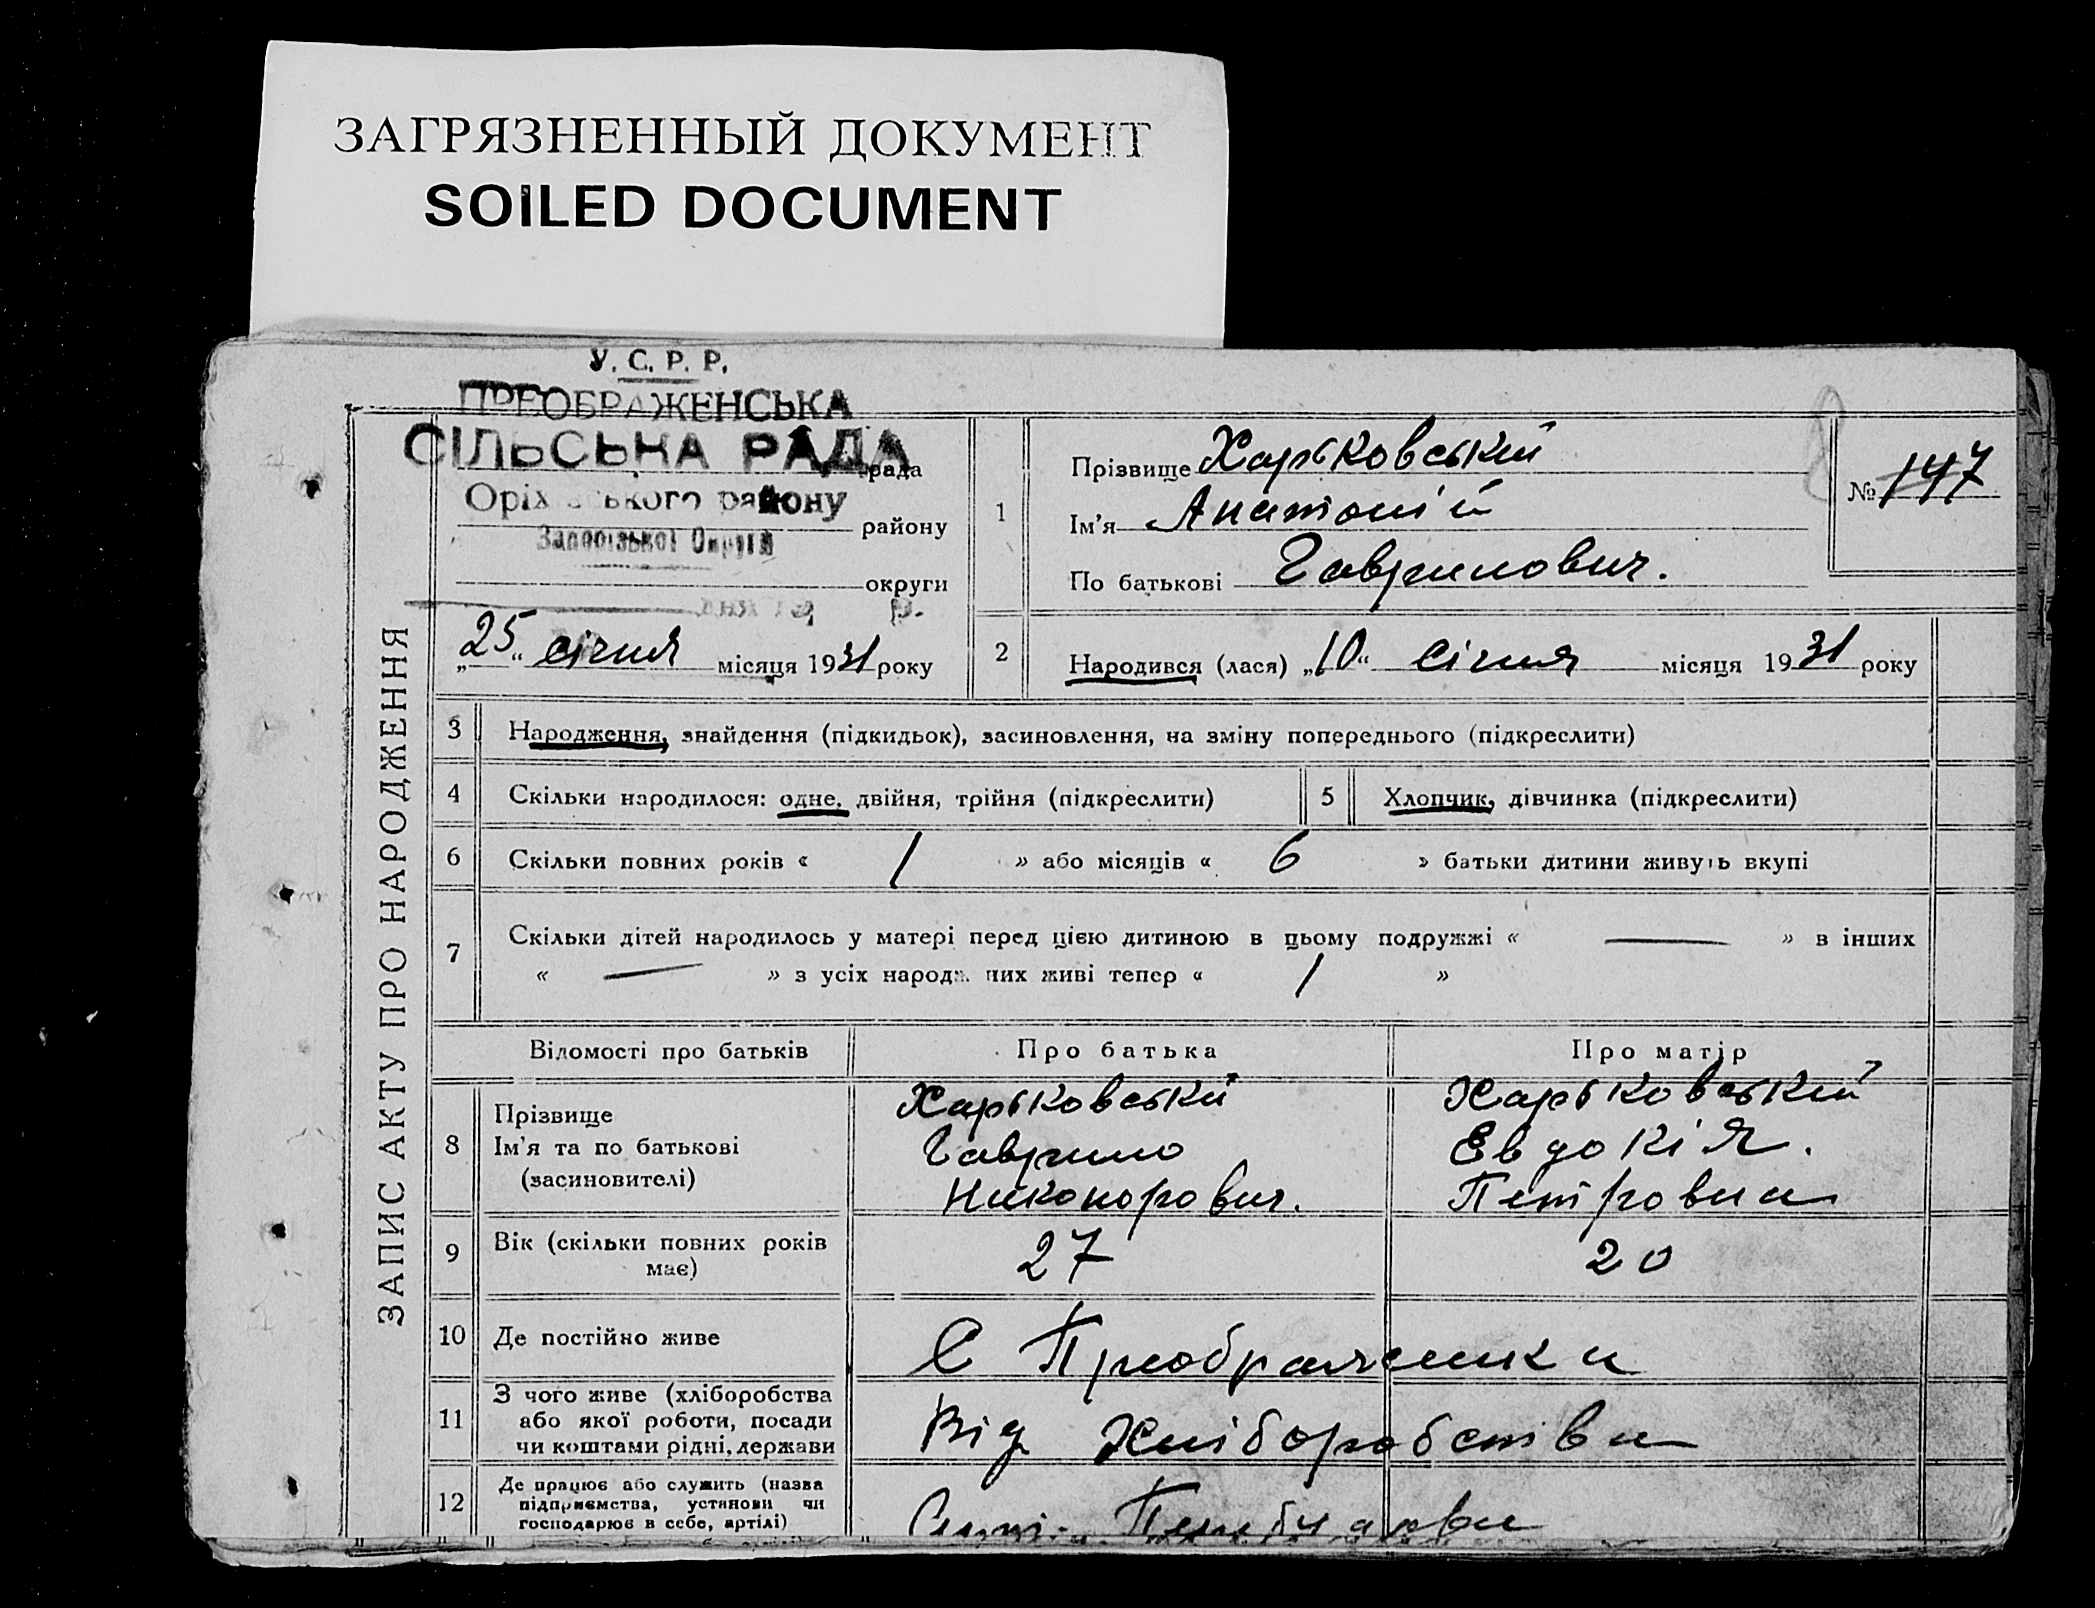 ЗАГРЯЗНЕННЫЙ ДОКУМЕНТ
SOILED DOCUMENT
У. С. Р. Р.
ПРЕОБРАЖЕНСЬКА
СІЛЬСЬКА РАДА
рада
Оріхівського району
району
Запорізької Округи
округи
„25“ січня місяця 1931 року
1
Прізвище Харьковський
Ім’я Анатолій
По батькові Гаврилович.
№ 147
2
Народився (лася) „10“ січня місяця 1931 року
ЗАПИС АКТУ ПРО НАРОДЖЕННЯ
3 Народження, знайдення (підкидьок), засиновлення, на зміну попереднього (підкреслити)
4 Скільки народилося: одне, двійня, трійня (підкреслити) 5 Хлопчик, дівчинка (підкреслити)
6 Скільки повних років « 1 » або місяців « 6 » батьки дитини живуть вкупі
7 Скільки дітей народилось у матері перед цією дитиною в цьому подружжі « — » в інших
« — » з усіх народжених живі тепер « 1 »
Відомості про батьків Про батька Про матір
8 Прізвище Харьковський Харьковський
Ім’я та по батькові Гаврило Евдокія.
(засиновителі) Никонорович. Петровна
9 Вік (скільки повних років має) 27 20
10 Де постійно живе С Преображенки
11 З чого живе (хліборобства
або якої роботи, посади
чи коштами рідні, держави Від Хліборобства
12 Де працює або служить (назва
підприємства, установи чи
господарює в себе, артілі)